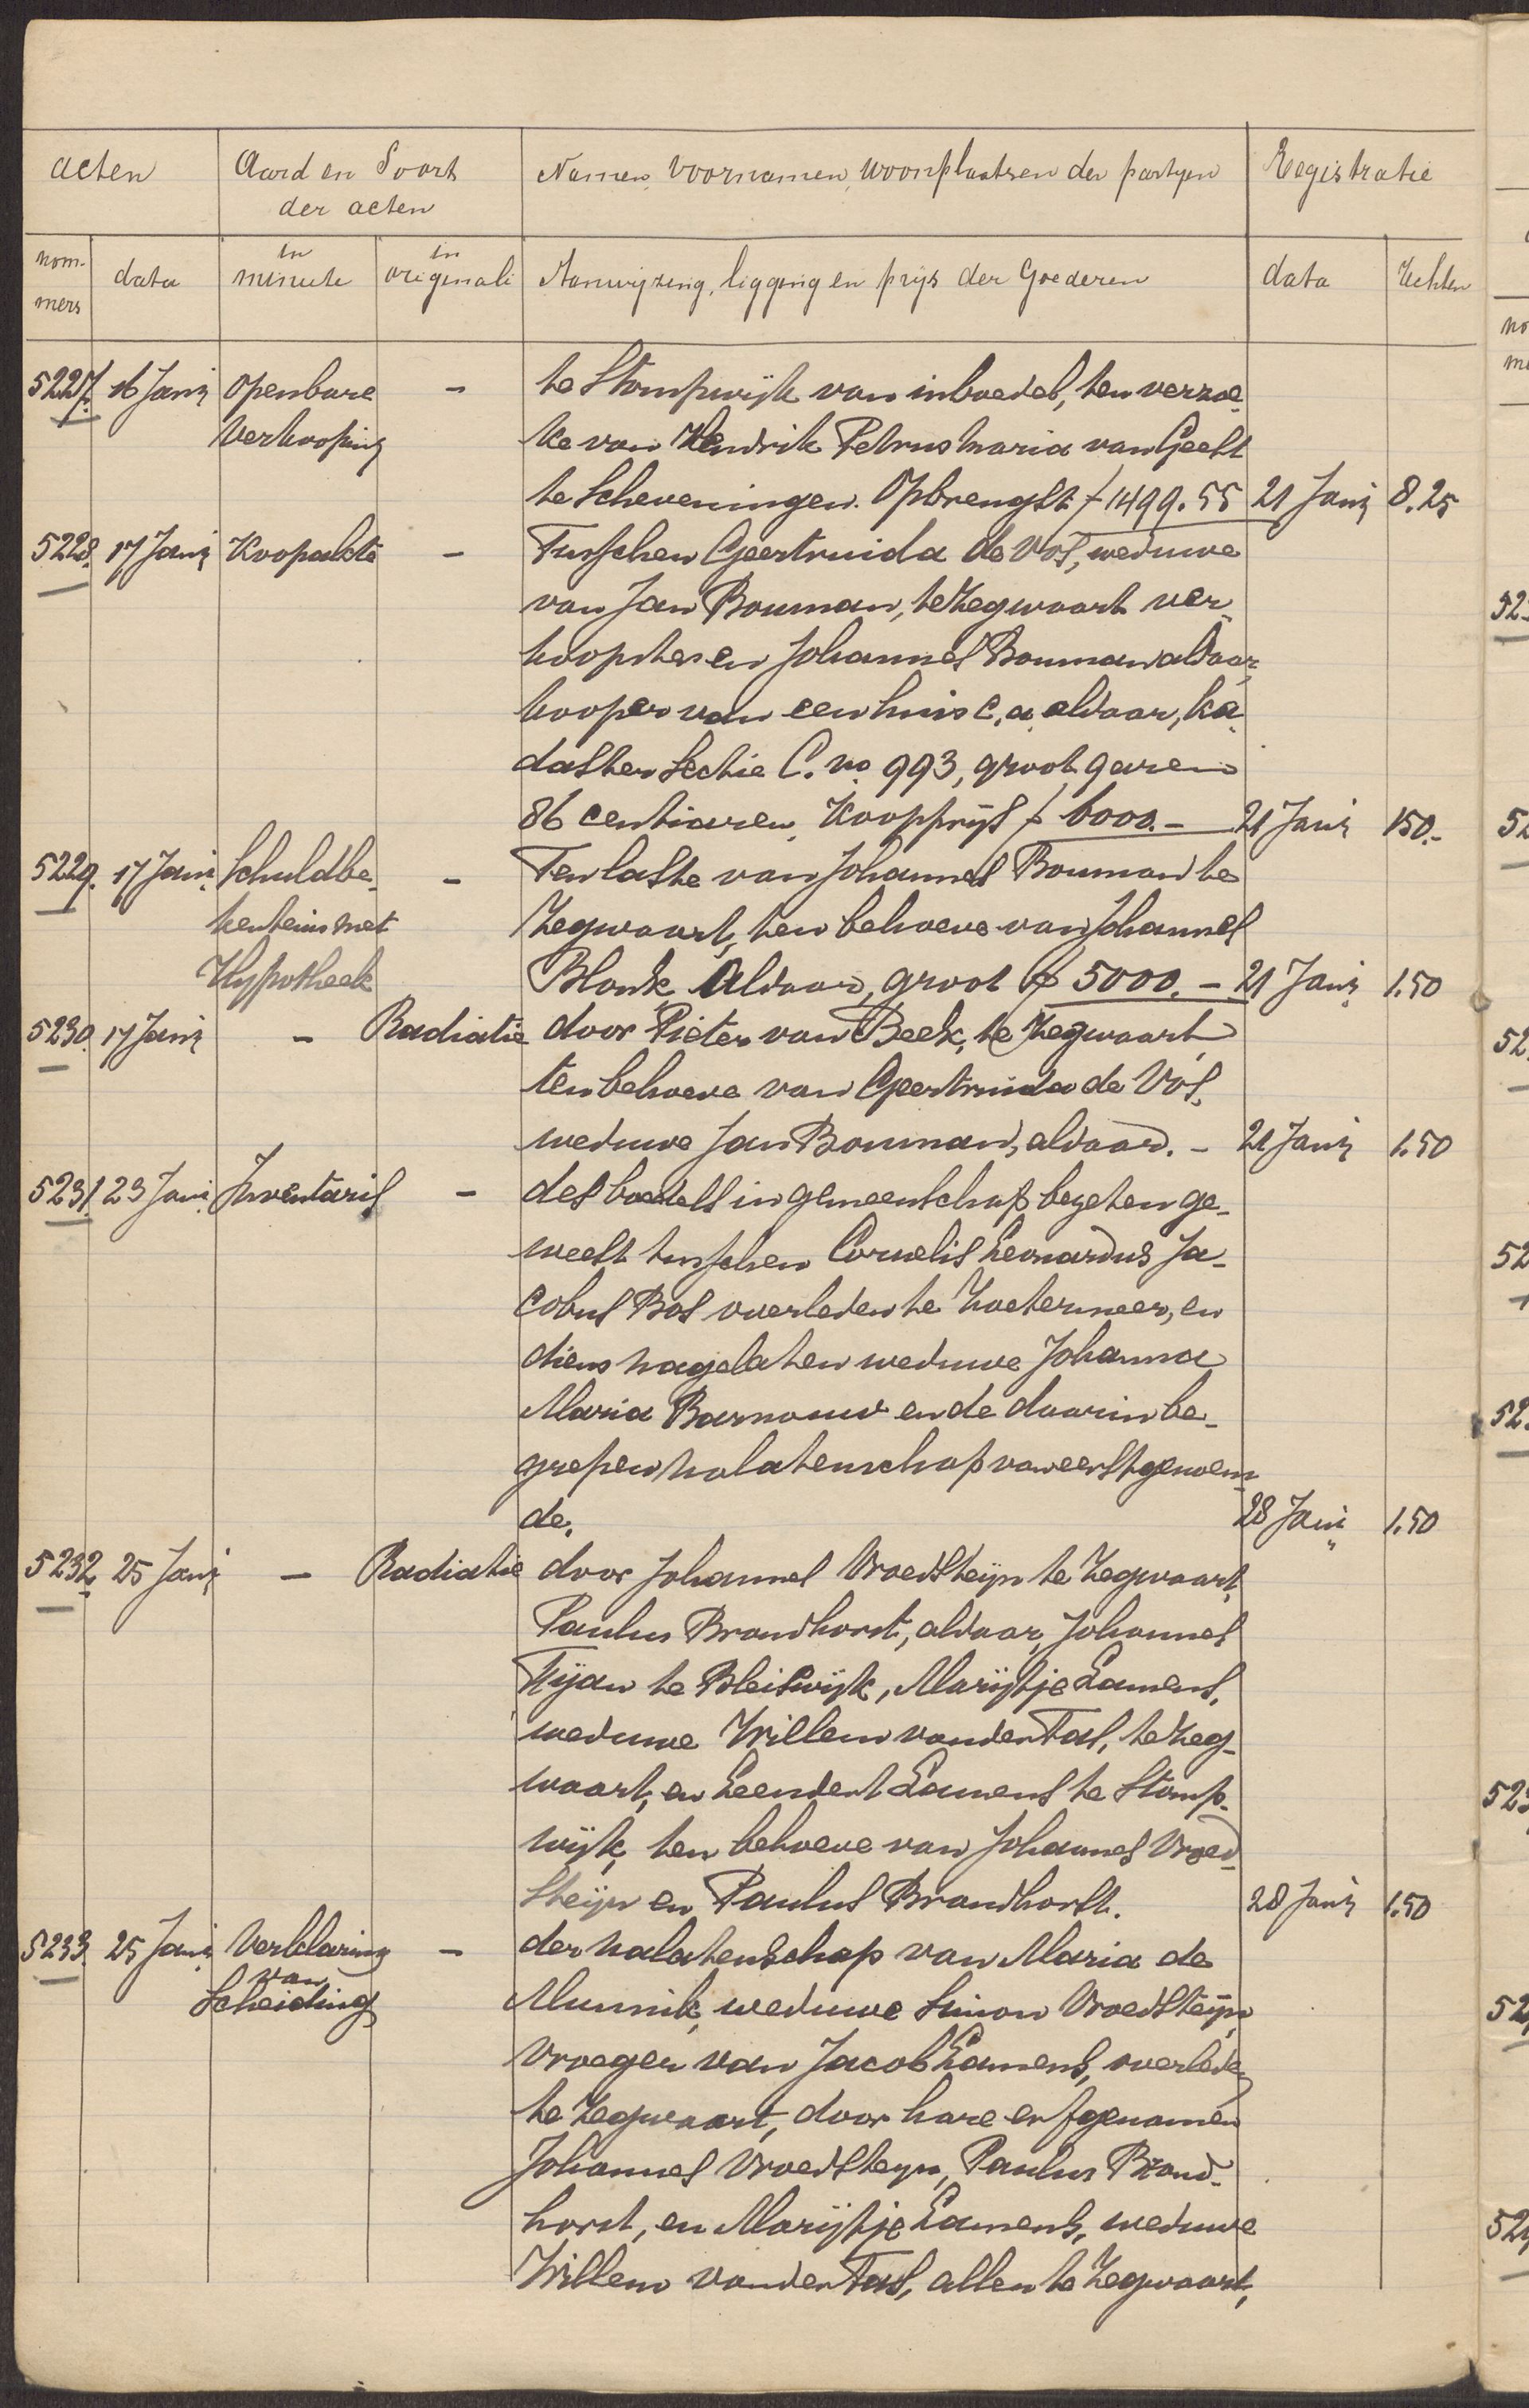 acten Aard en Soort Namen, Voornamen, woonplaatsen der partyen Registratie
der acten
nom- data in in Aanwyzing, ligging en prijs der Goederen data Rechten
mers minute originali
5227. 16 Janij Openbare - te Stompwijk van inboedel, ten verzoe-
Verkooping ke van Hendrik Petrus Maria van Geest
te Scheveningen. Opbrengst f 1499.55 21 Janij 8.25
5228. 17 Janij Koopakte - Tusschen Geertruida de Vos, weduwe
van Jan Bouman, te Zegwaart ver-
koopster en Johannes Bouman aldaar,
kooper van een huis c.a. aldaar, ka-
daster Sectie C. no 993, groot 9 aren
86 centiaren, Koopprijs f 6000.- 21 Janij 150.-
5229. 17 Janij Schuldbe- - Ten laste van Johannes Bouman te
kentenis met Zegwaart, ten behoeve van Johannes
Hypotheek Blonk aldaar, groot f 5000.- 21 Janij 1.50
5230. 17 Janij - Radiatie door Pieter van Beek, te Zegwaart
ten behoeve van Geertruida de Vos,
weduwe Jan Bouman, aldaar. - 21 Janij 1.50
5231 23 Janij Inventaris - des boedels in gemeenschap bezeten ge-
weest tusschen Cornelis Leonardus Ja-
cobus Bos overleden te Zoetermeer, en
diens nagelaten weduwe Johanna
Maria Barnouw en de daarin be-
grepen nalatenschap van eerstgenoem-
de. 28 Janij 1.50
5232 25 Janij - Radiatie door Johannes Vroedsteijn te Zegwaart,
Paulus Brandhorst, aldaar, Johannes
te Bleiswijk, Marijtje Lamens,
weduwe Willem van der Tas, te Zeg-
waart, en Leendert Lamens te Stomp-
wijk, ten behoeve van Johannes Vroed-
steijn en Paulus Brandhorst. 28 Janij 1.50
5233. 25 Janij Verklaring - der nalatenschap van Maria de
van
Scheiding Munnik, weduwe Simon Vroedsteijn
vroeger van Jacob Lamens, overleden
te Zegwaart, door hare erfgenamen
Johannes Vroedsteyn, Paulus Brand-
horst, en Marijtje Lamens, weduwe
Willem van der Tas, allen te Zegwaart,